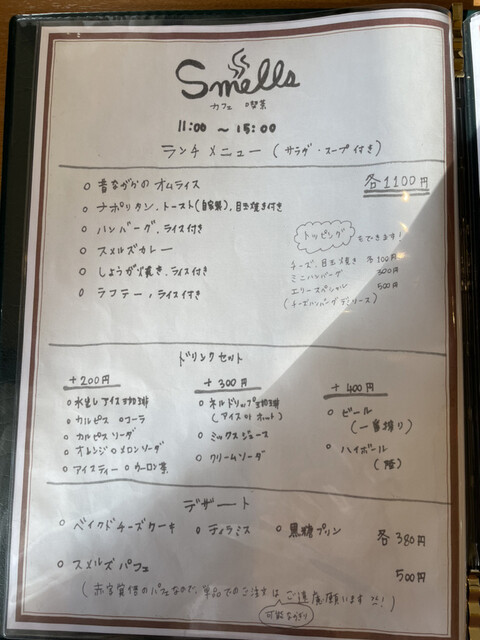 Smells
カフェ 喫茶
11:00 ~ 15:00
ランチメニュー (サラダ・スープ付き)
各1100円
○ 昔ながらのオムライス
○ ナポリタン、トースト(自家製)、目玉焼き付き
○ ハンバーグ、ライス付き
○ スメルズカレー
○ しょうが焼き、ライス付き
○ ラフテー、ライス付き
トッピングもできます!
チーズ、目玉焼き 各100円
ミニハンバーグ 300円
エリースペシャル 500円
(チーズハンバーグデミソース)
ドリンクセット
+200円
○ 水出しアイス珈琲
○ カルピス ○コーラ
○ カルピスソーダ
○ オレンジ ○メロンソーダ
○ アイスティー ○ウーロン茶
+300円
○ ネルドリップ珈琲
(アイスorホット)
○ ミックスジュース
○ クリームソーダ
+400円
○ ビール
(一番搾り)
○ ハイボール
(陸)
デザート
○ ベイクドチーズケーキ ○ ティラミス ○ 黒糖プリン 各380円
○ スメルズパフェ 500円
(赤字覚悟のパフェなので、単品でのご注文はご遠慮願います!)
可能ならば